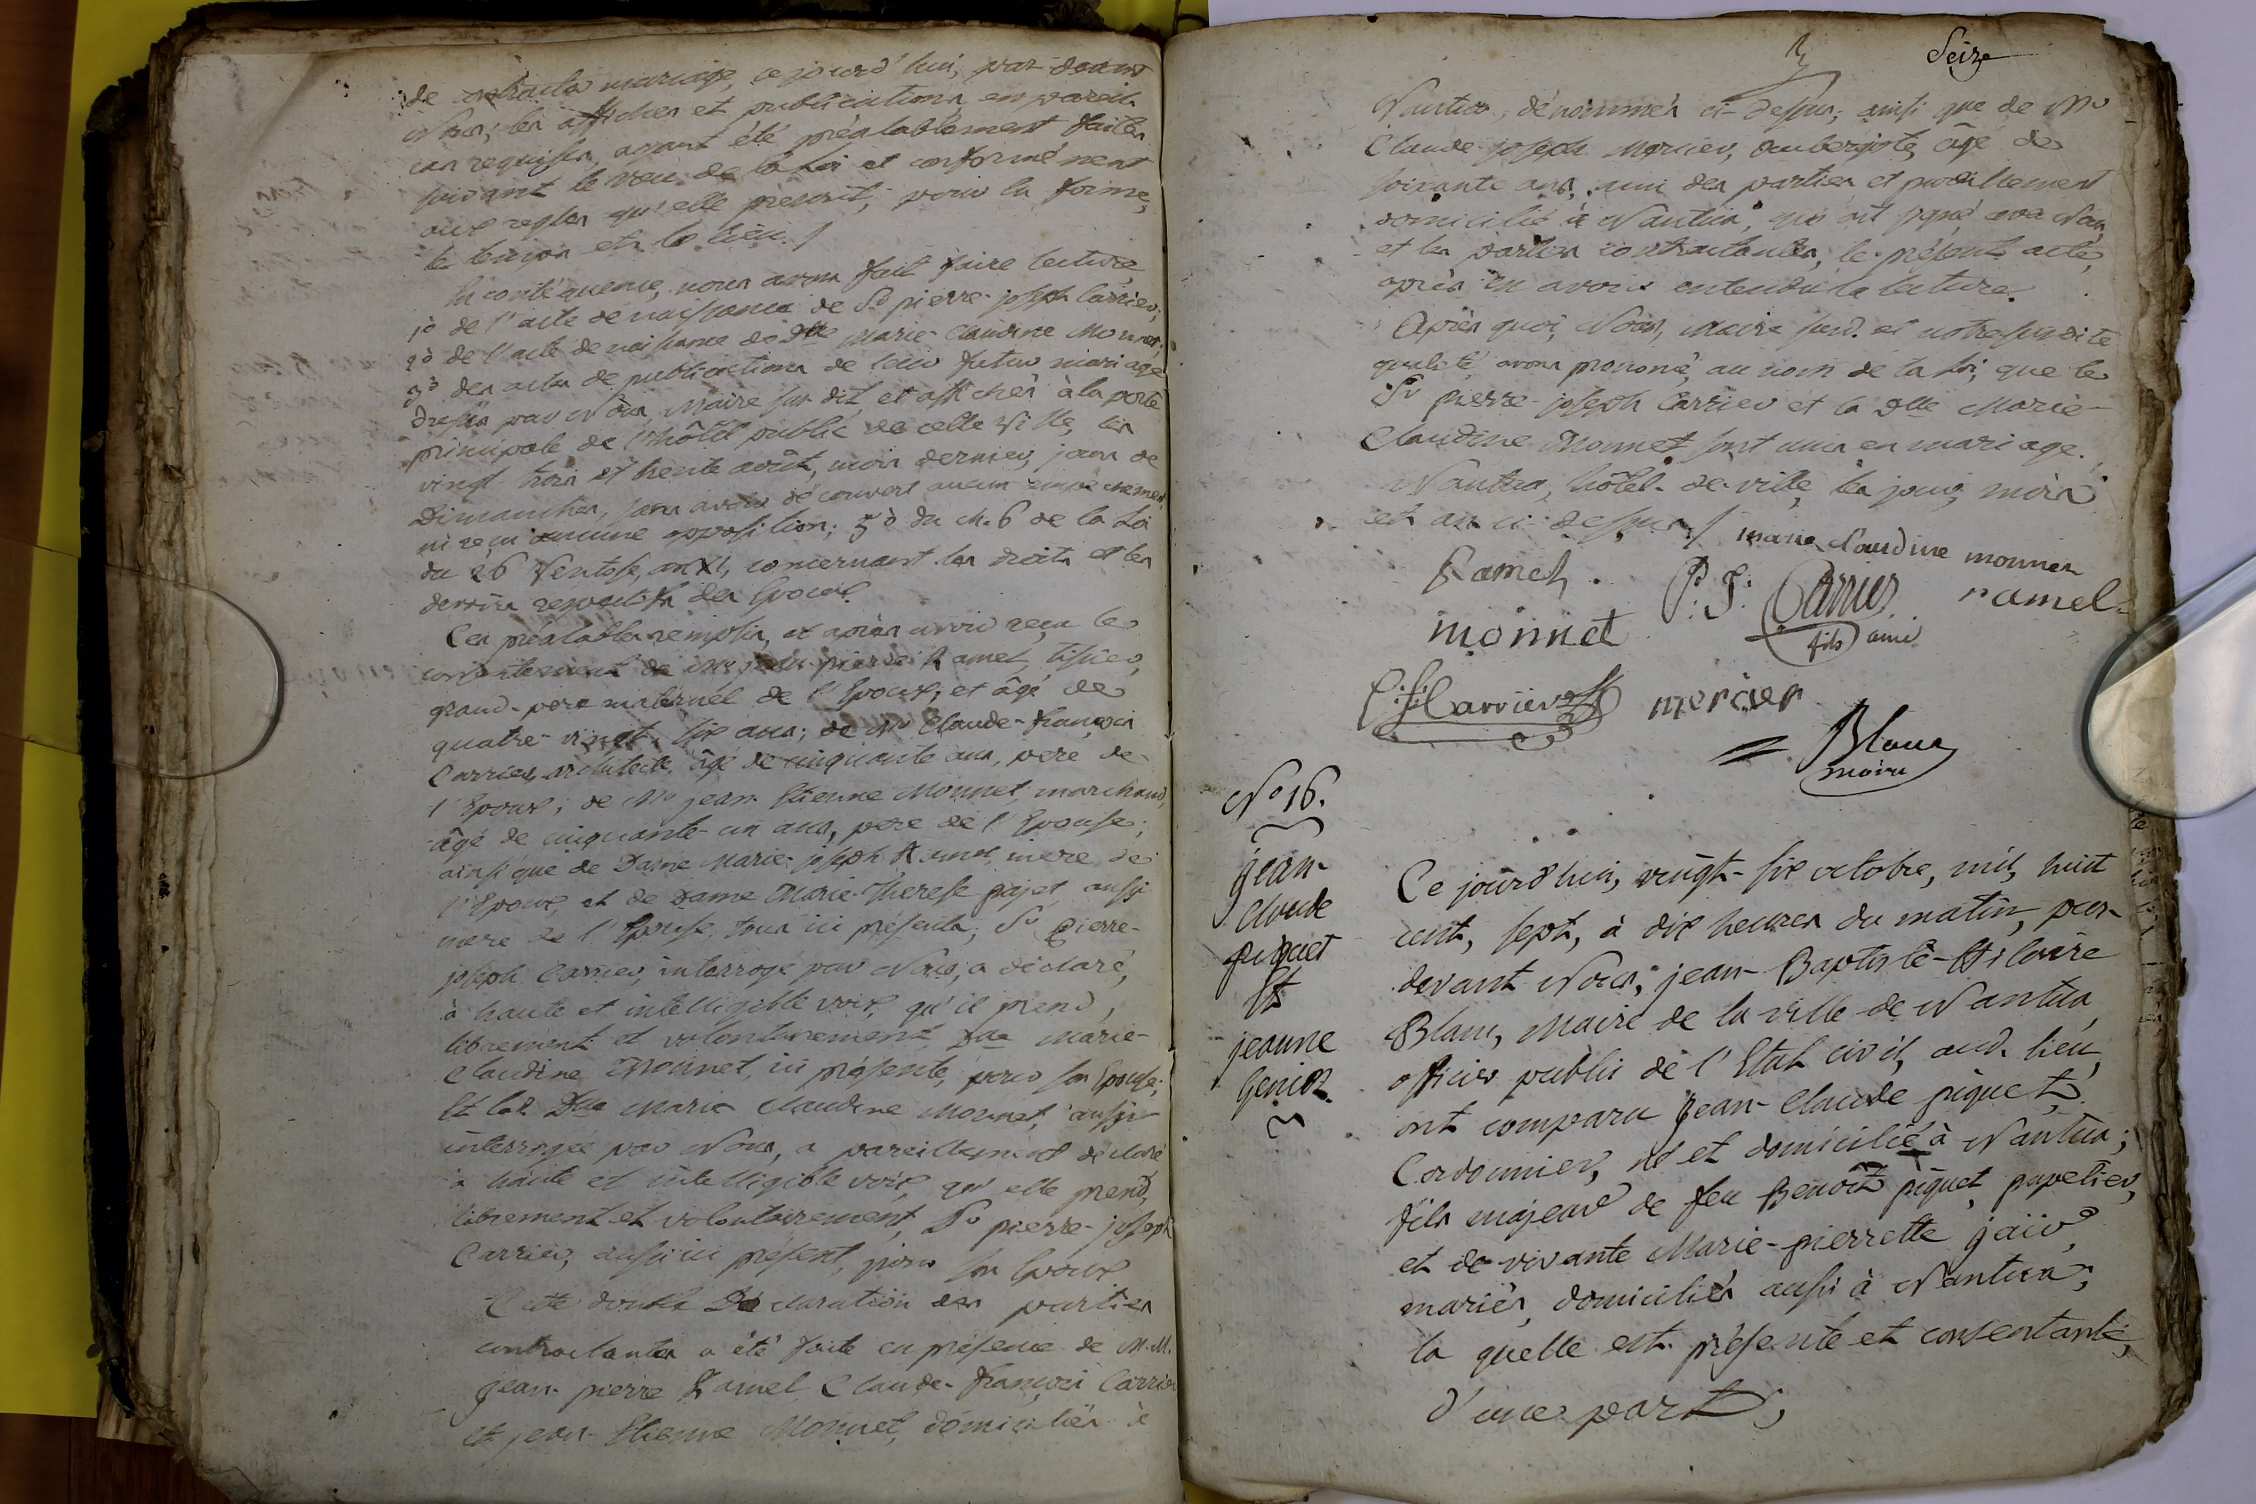 de contracter mariage, ce jourd'hui, par-devant
Nous; les affiches et publications, en pareil
cas requises, ayant été préalablement faites
suivant le vœu de la Loi et conformément
aux regles qu'elle prescrit, pour la forme,
le tems et le lieu./
En conséquence, nous avons fait faire lecture,
1o de l'acte de naissance de Sr pierre-joseph Carrier;
2o de l'acte de naissance de Dlle Marie-Claudine Monnet;
3o des actes de publications de leur futur mariage
dressés par Nous, Maire susdit et affichés à la porte
principale de l'hôtel public de cette Ville, les
vingt trois et trente août, mois dernier, jours de
Dimanches, sans avoir découvert aucun empêchement
ni reçu aucune opposition; 5o du Ch. 6 de la Loi
du 26 Ventose, an XI, concernant les droits et les
devoirs respectifs des Epoux.
Ces préalables remplis, et après avoir reçu le
consentement de Mr jean-pierre Ramel, tissier,
grand-pere maternel de l'Epoux, et âgé de
quatre-vingt-six ans; de Mr Claude-françois
Carrier architecte, âgé de cinquante ans, pere de
l'Epoux; de Mr jean-Etienne Monnet, marchand,
âgé de cinquante-un ans, pere de l'Epouse;
ainsi que de Dame Marie-joseph Ramel, mere de
l'Epoux, et de Dame Marie-Therese pajet, aussi
mere de l'Epouse, tous ici présents; Sr pierre-
joseph Carrier, interrogé par Nous, a déclaré,
à haute et intelligible voix, qu'il prend,
librement et volontairement Dlle Marie-
Claudine Monnet, ici présente, pour son Epouse;
Et lad. Dlle Marie Claudine Monnet, aussi
interrogée par Nous, a pareillement déclaré
à haute et intelligible voix, qu'elle prend,
librement et volontairement, Sr pierre-joseph
Carrier, aussi ici présent, pour son Epoux
Cette double Déclaration des parties
contractantes a été faite en présence de M.M.
jean-pierre Ramel, Claude-françois Carrier
et jean-Etienne Monnet, domiciliés à
Seize
Nantua, dénommés ci-dessus; ainsi que de Mr
Claude-joseph Mercier, aubergiste, âgé de
soixante ans, ami des parties et pareillement
domicilié à Nantua, qui ont signé avec Nous
et les parties contractantes, le présent acte,
après en avoir entendu la lecture.
Après quoi, Nous, Maire susd. et notre susdite
qualité, avons prononcé, au nom de la Loi, que le
Sr pierre-joseph Carrier et la Dlle Marie-
Claudine Monnet sont unis en mariage.
Nantua, hôtel-de-ville, les jour, mois
et an ci-dessus./
marie claudine monnet
Ramel. P. J. Carrier ramel
fils ainé
monnet
C. f. Carrier mercier
Blanc
maire
No 16.
jean-
Claude
piquet
Et
jeanne
Geniez.
Ce jourd'hui, vingt-six octobre, mil, huit
cent, sept, à dix heures du matin, par-
devant Nous, jean-Baptiste-Hilaire
Blanc, Maire de la ville de Nantua,
officier public de l'Etat civil, aud. lieu,
ont comparu jean-Claude piquet,
Cordonnier, né et domicilié à Nantua;
fils majeur de feu Benoît piquet, papetier,
et de vivante Marie-pierrette jaiir,
mariés, domiciliés aussi à Nantua;
la quelle est présente et consentante;
d'une part;